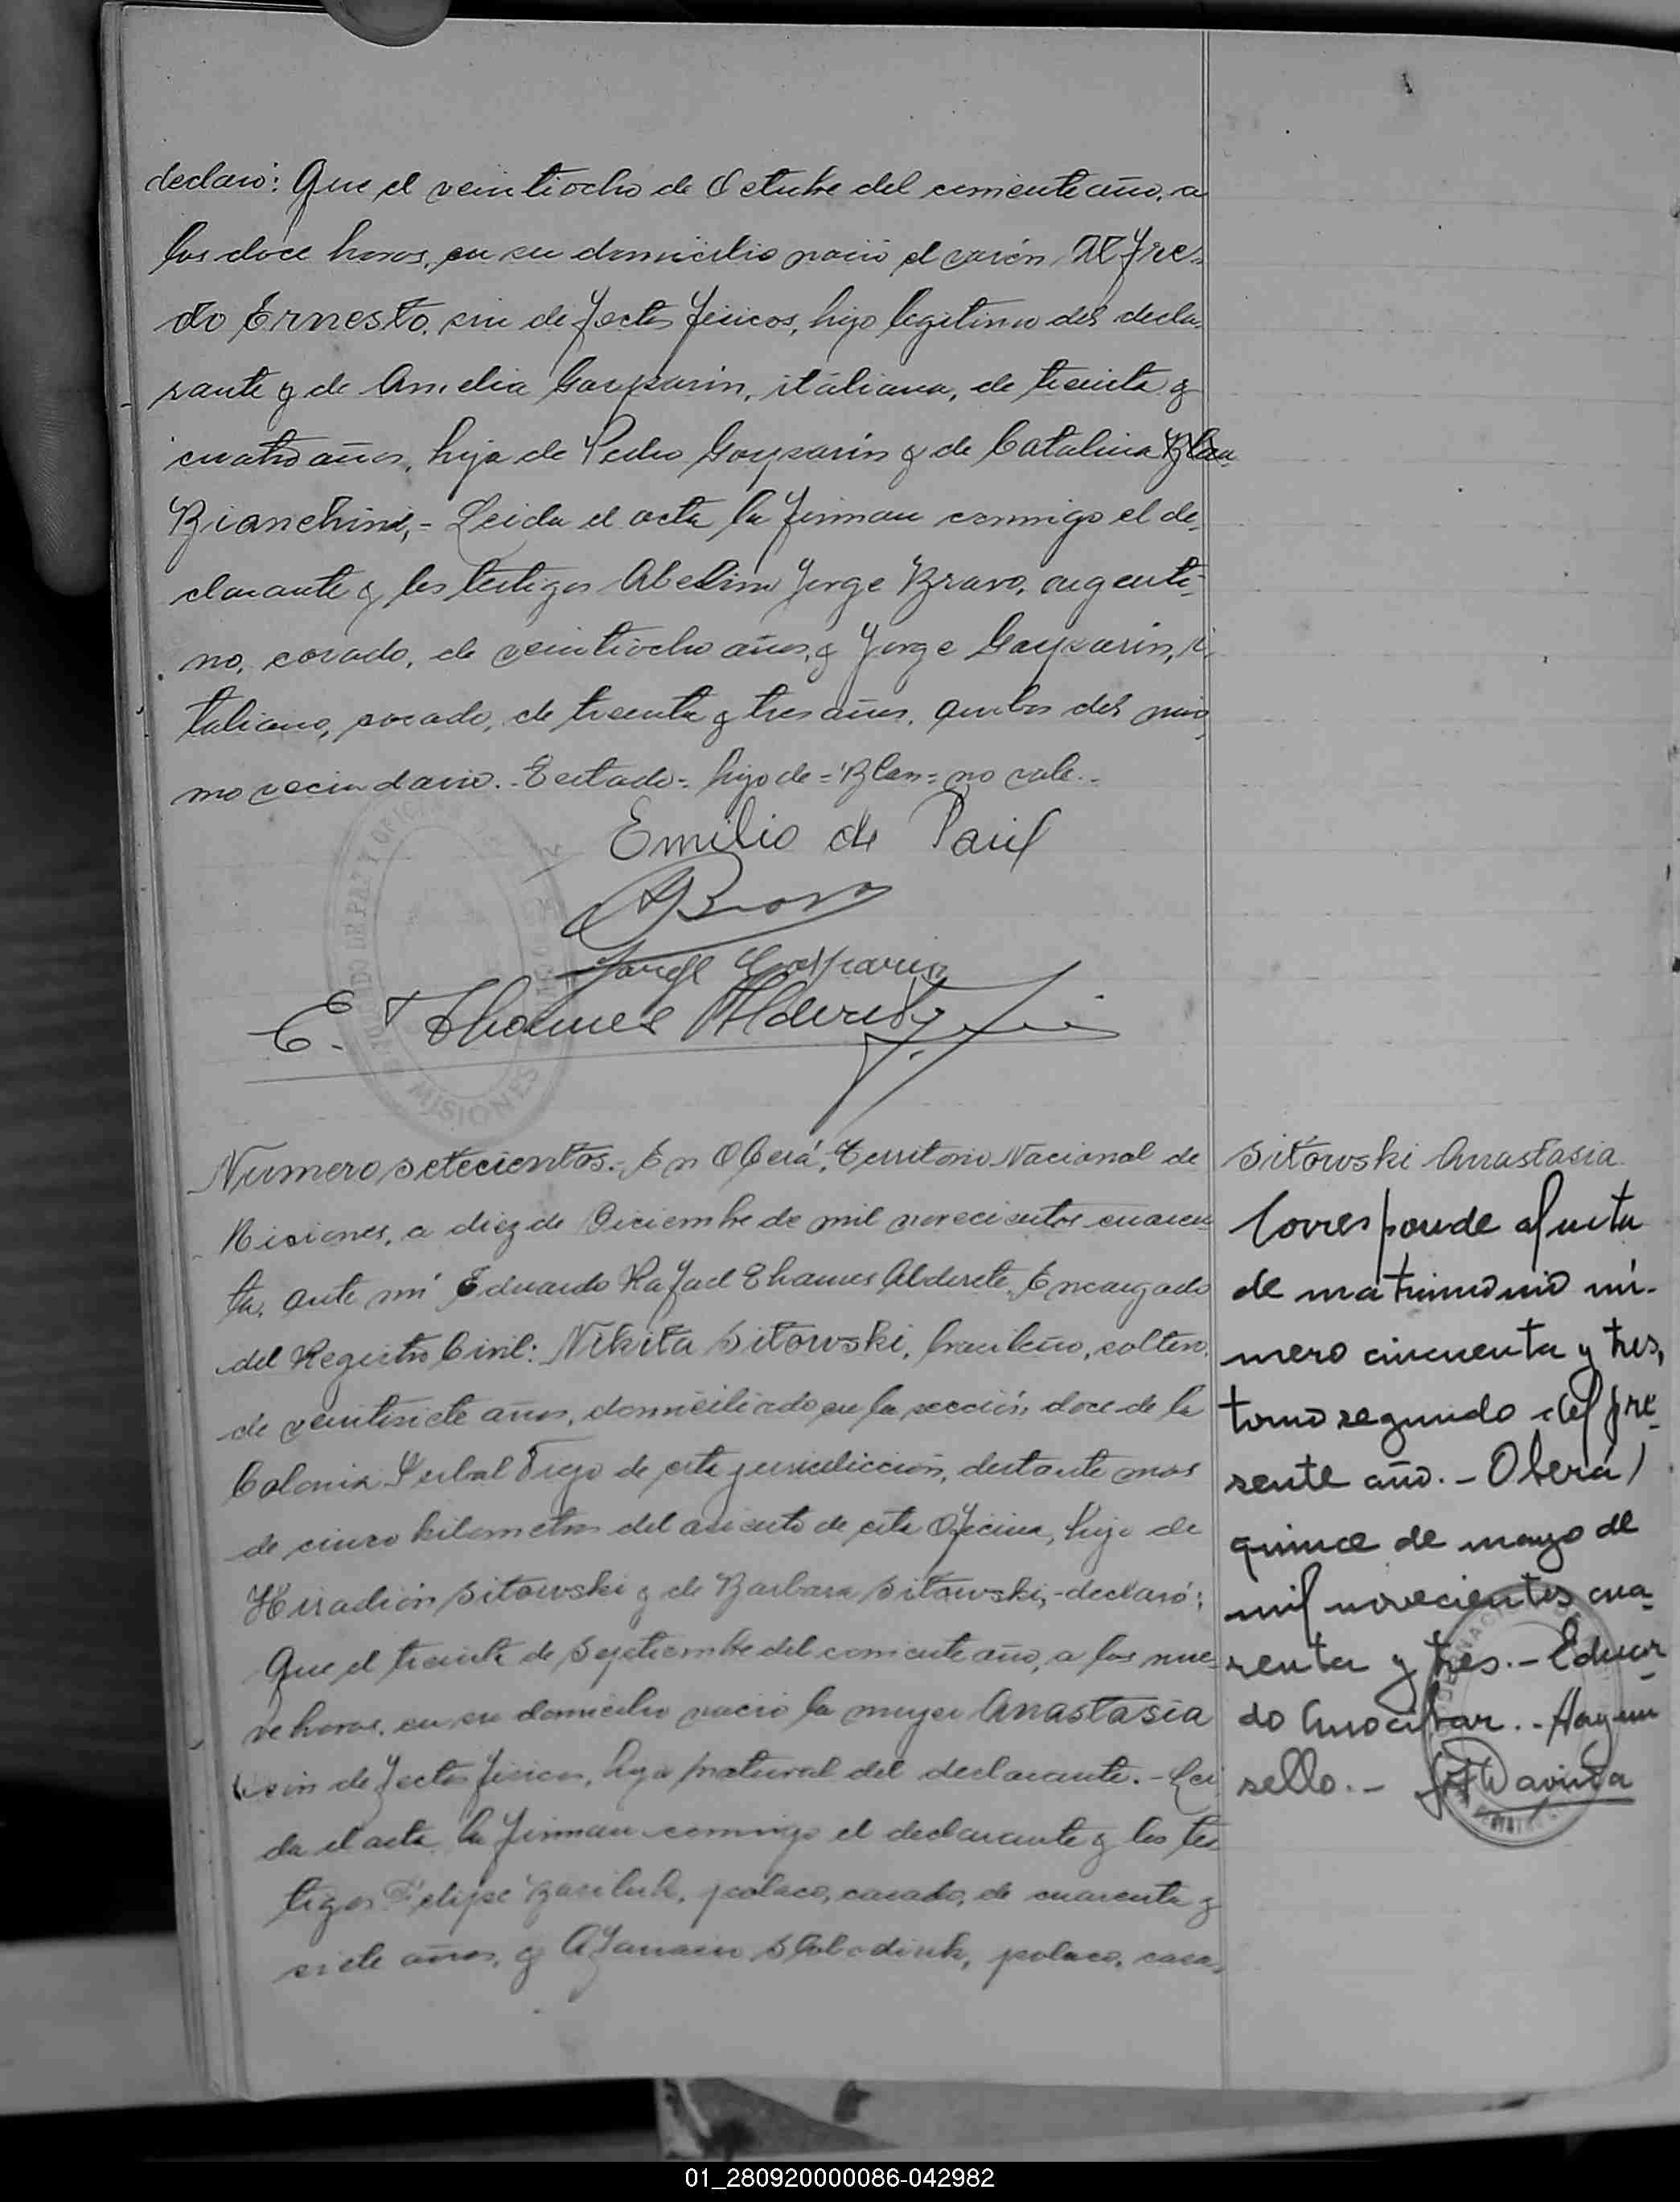 declaró: Que el veintiocho de Octubre del corriente año, a
las doce horas, en su domicilio nació el varón Alfre-
do Ernesto, sin defectos físicos, hijo legítimo del decla-
rante y de Amelia Gasparin, italiana, de treinta y
cuatro años, hija de Pedro Gasparin y de Catalina Blan
Bianchini,- Leida el acta la firman conmigo el de-
clarante y los testigos Abelino Jorge Bravo, argenti-
no, casado, de veintiocho años, y Jorge Gasparin, i-
taliano, casado, de treinta y tres años, ambos del mis-
mo vecindario.- Testado = hijo de = Blan = no vale.-
Emilio de Paul
ABravo
Jorge Gasparin
E. Thames Alderete
MISIONES
Numero setecientos.- En Oberá, Territorio Nacional de
Misiones, a diez de Diciembre de mil novecientos cuaren-
ta, ante mi Eduardo Rafael Thames Alderete, Encargado
del Registro Civil: Nikita Sitowski, brasileño, soltero,
de veintisiete años, domiciliado en la sección doce de la
Colonia Yerbal Viejo de esta jurisdicción, distante mas
de cinco kilometros del asiento de esta Oficina, hijo de
Hiradión Sitowski y de Barbara Sitowski,- declaró:
Que el treinta de Septiembre del corriente año, a las nue-
ve horas, en su domicilio nació la mujer Anastasia
sin defectos físicos, hija natural del declarante.- Lei-
da el acta la firman conmigo el declarante y los tes-
tigos Felipe Basiluk, polaco, casado, de cuarenta y
siete años, y Afanasin Slobodiuk, polaco, casa-
Sitowski Anastasia
Corresponde al acta
de matrimonio nú-
mero cincuenta y tres,
tomo segundo del pre-
sente año.- Oberá,
quince de mayo de
mil novecientos cua-
renta y tres.- Eduar-
do Amocibar.- Hay un
sello.-
01_280920000086-042982